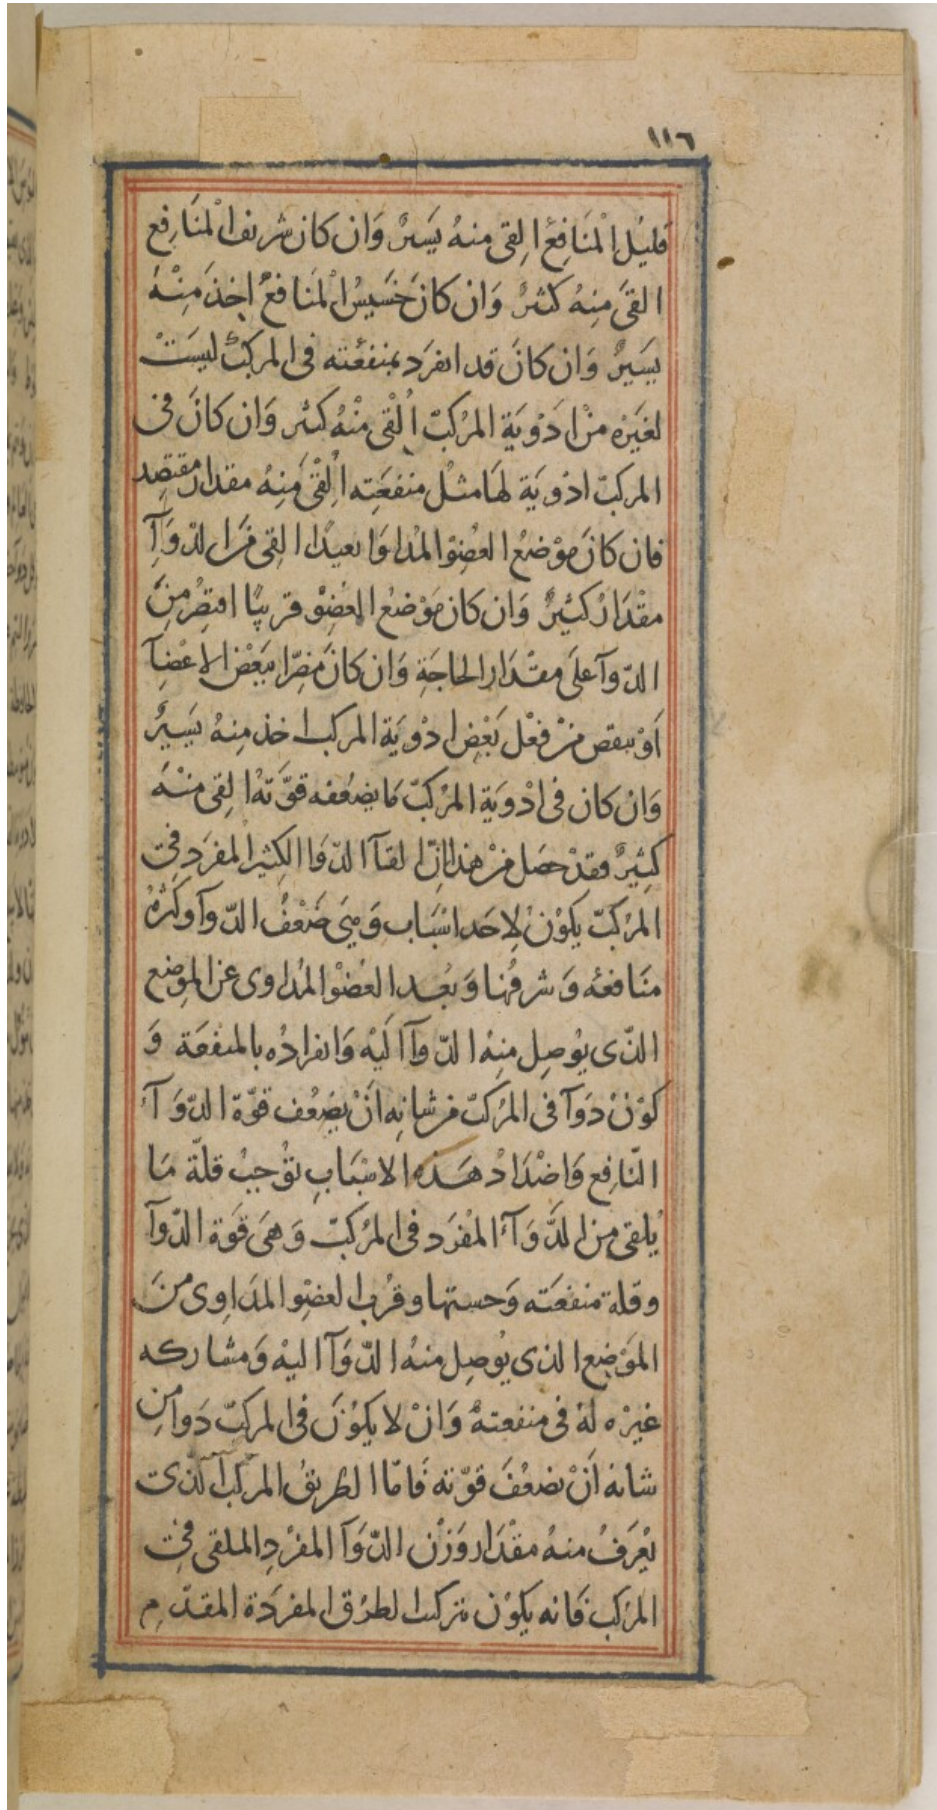 ١١٦
قليل المنافع القى منه يسير وان كان شريف المنافع
القى منه كثير وان كان خسيس المنافع اخذ منه
يسير وان كان قد انفرد بمنفعته فى المركب ليست
لغيره من ادوية المركب القى منه كثير وان كان فى
المركب ادوية لها مثل منفعته القى منه مقدار مقتصد
فان كان موضع العضو المداوا بعيدا القى من الدوآ
مقدار كثير وان كان موضع العضو قريبا اقتصر من
الدوآ على مقدار الحاجة وان كان مضرا ببعض الاعضآ
او ينقص من فعل بعض ادوية المركب اخذ منه يسير
وان كان فى ادوية المركب ما يضعفه قوته القى منه
كثير فقد حصل من هذا ان القآ الدوا الكثير المفرد فى
المركب يكون لاحد اسباب وهى ضعف الدوآ وكثرة
منافعه وشرفها وبعد العضو المداوى عن الموضع
الذى يوصل منه الدوآ اليه وانفراده بالمنفعة و
كون دوآ فى المركب من شانه ان يضعف قوة الدوآء
النافع واضداد هذه الاسباب توجب قلة ما
يلقى من الدوآء المفرد فى المركب وهى قوة الدوآ
وقلة منفعته وخستها وقرب العضو المداوى من
الموضع الذى يوصل منه الدوآ اليه ومشاركه
غيره له فى منفعته وان لا يكون فى المركب دوا من
شانه ان يضعف قوته فاما الطريق المركب الذى
يعرف منه مقدار وزن الدوآ المفرد الملقى فى
المركب فانه يكون بتركب الطرق المفردة المقدم